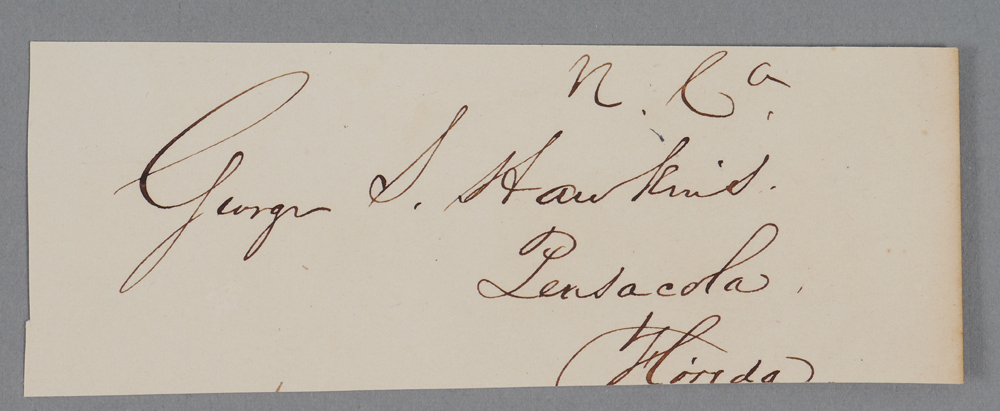 N. Ca.
George S. Hawkins.
Pensacola.
Florida